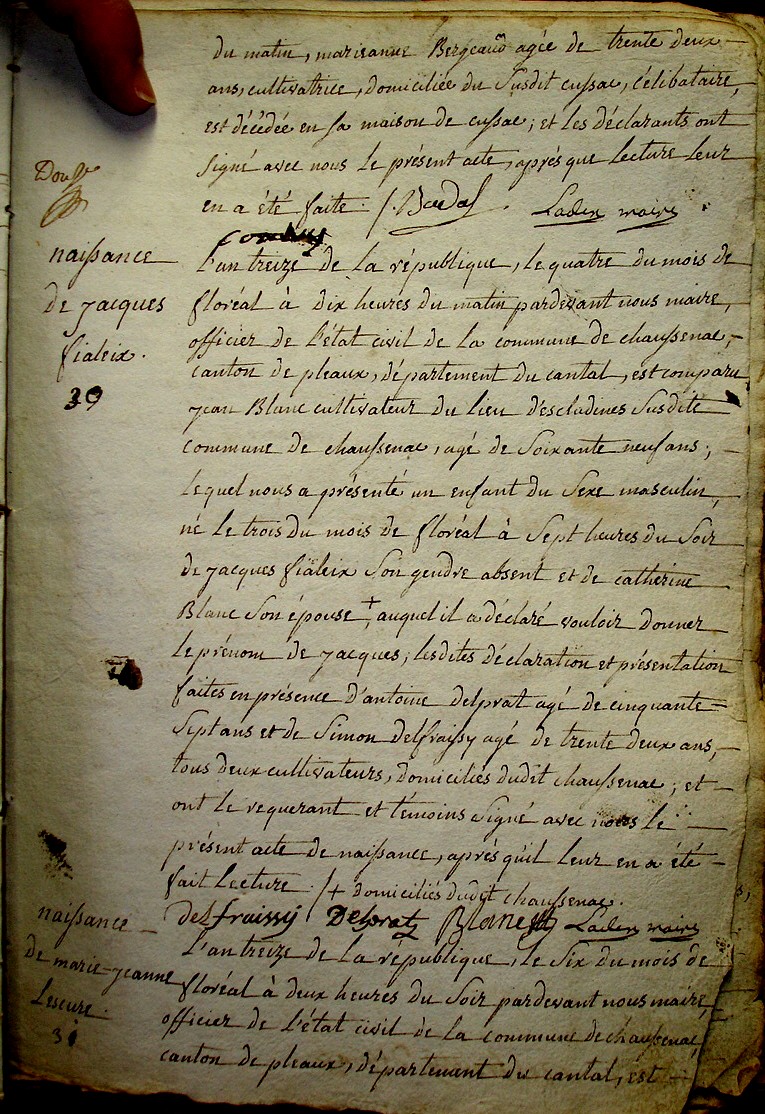 du matin, marieanne Bergeaud agée de trente deux
ans, cultivatrice, domiciliée du Susdit cussac, célibataire,
est décédée en sa maison de cussac; et les déclarants ont
signé avec nous le présent acte, après que lecture leur
en a été faite. /.
Ladex maire
naissance
de jacques
fialeix.
39
L'an treize de la république, le quatre du mois de
floréal à dix heures du matin pardevant nous maire,
officier de l'état civil de la commune de chaussenac,
canton de pleaux, département du cantal, est comparu
jean Blanc cultivateur du lieu d'escladines Susdite
commune de chaussenac, agé de Soixante neuf ans;
lequel nous a présenté un enfant du Sexe masculin,
né le trois du mois de floréal à Sept heures du Soir
de jacques fialeix Son gendre absent et de catherine
Blanc Son épouse +, auquel il a déclaré vouloir donner
le prénom de jacques; lesdites déclaration et présentation
faites en présence d'antoine delprat agé de cinquante
Sept ans et de Simon delfraissy agé de trente deux ans,
tous deux cultivateurs, domiciliés dudit chaussenac; et
ont le requerant et témoins signé avec nous le
présent acte de naissance, après qu'il leur en a été
fait lecture ./. + domiciliés dudit chaussenac.
delfraissy Delprat Blanc Ladex maire
naissance
de marie jeanne
Lescure.
L'an treize de la république, le Six du mois de
floréal à deux heures du Soir pardevant nous maire,
officier de l'état civil de la commune de chaussenac,
canton de pleaux, département du cantal, est